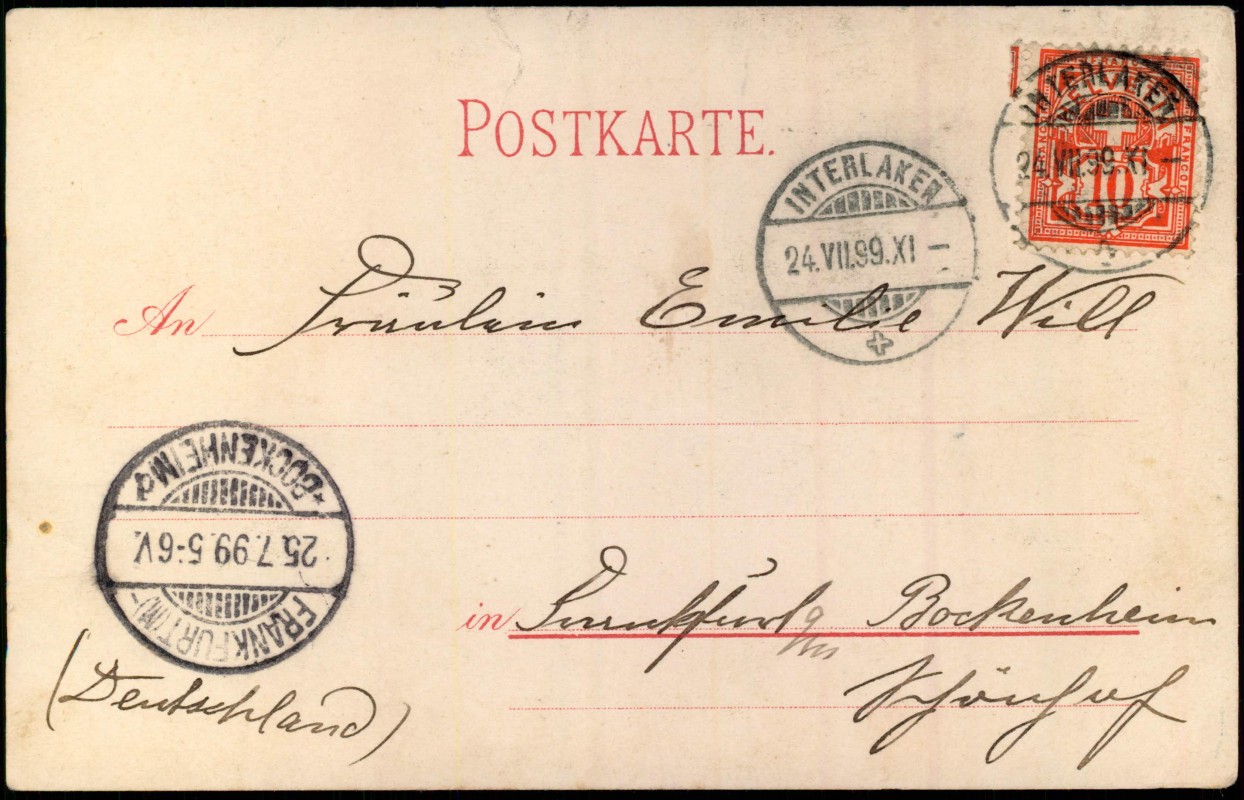 POSTKARTE.
INTERLAKEN
24.VII.99.XI –
10
FRANCO
INTERLAKEN
24.VII.99.XI –
An Fräulein Emilie Will
FRANKFURT (M)-
25.7.99.5-6V.
-BOCKENHEIM d
in Frankfurt a/M Bockenheim
Schönhof
(Deutschland)